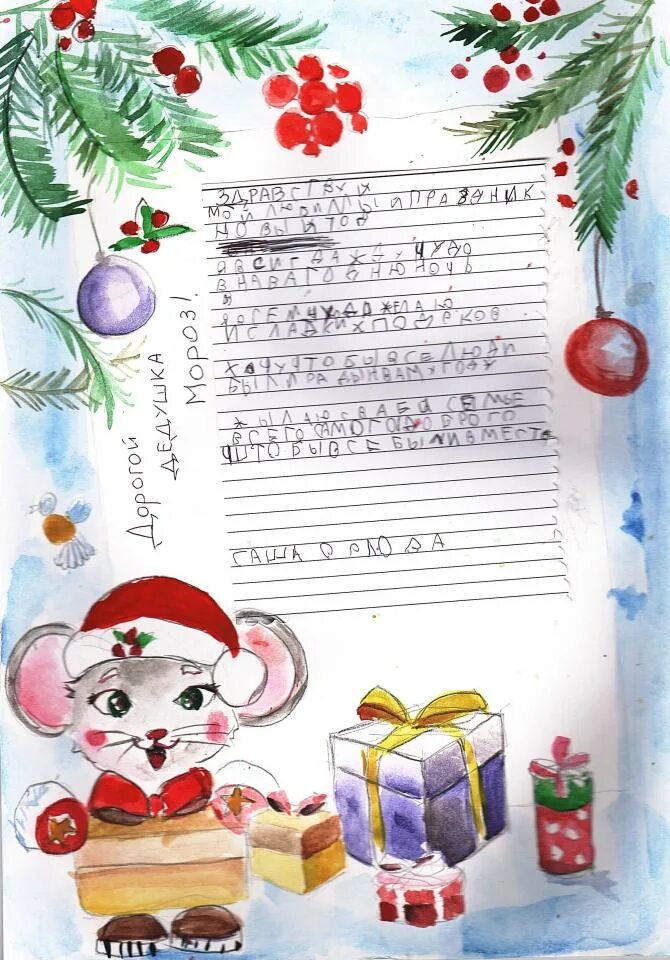 Дорогой
ДЕДУШКА
МОРОЗ!
ЗДРАВСТВУЙ
МОЙ ЛЮБИМЫЙ ПРАЗНИК
НОВЫЙ ГОД
Я ВСИГДА ЖДУ ЧУДО
ВНАВАГОДНЮЮ НОЧЬ
И СЛАДКИХ ПОДАРКОВ
ХАЧУ ЧТО БЫ ВСЕ ЛЮДИ
БЫЛИ РАДЫ
ЖЫЛАЮ СВАЕЙ СЕМЬЕ
ВСЕГО САМОГО ДОБРОГО
ЧТО БЫ ВСЕ БЫЛИ ВМЕСТЕ
САША ОРЛОВА